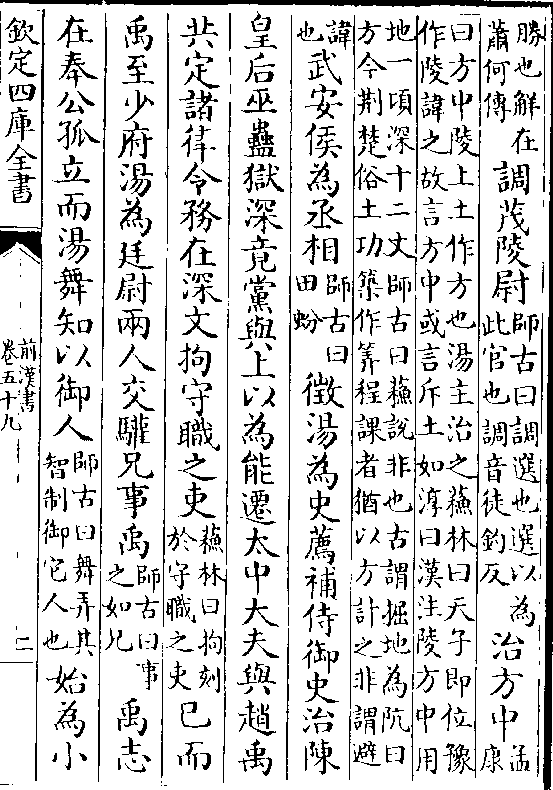 勝也解在
蕭何傳
調茂陵尉
師古曰調選也選以為
此官也調音徒釣反
治方中
孟
康
曰方中陵上土作方也湯主治之蘇林曰天子即位豫
作陵諱之故言方中或言斥土如淳曰漢注陵方中用
地一頃深十二丈師古曰蘇說非也古謂掘地為阬曰
方今荆楚俗土功築作筭程課者猶以方計之非謂避
諱
也
武安侯為丞相
師古曰
田蚡
徵湯為史薦補侍御史治陳
皇后巫蠱獄深竟黨與上以為能遷太中大夫與趙禹
共定諸律令務在深文拘守職之吏
蘇林曰拘刻
於守職之吏
已而
禹至少府湯為廷尉兩人交驩兄事禹
師古曰事
之如兄
禹志
在奉公孤立而湯舞知以御人
師古曰舞弄其
智制御它人也
始為小
欽定四庫全書
前漢書
卷五十九
二